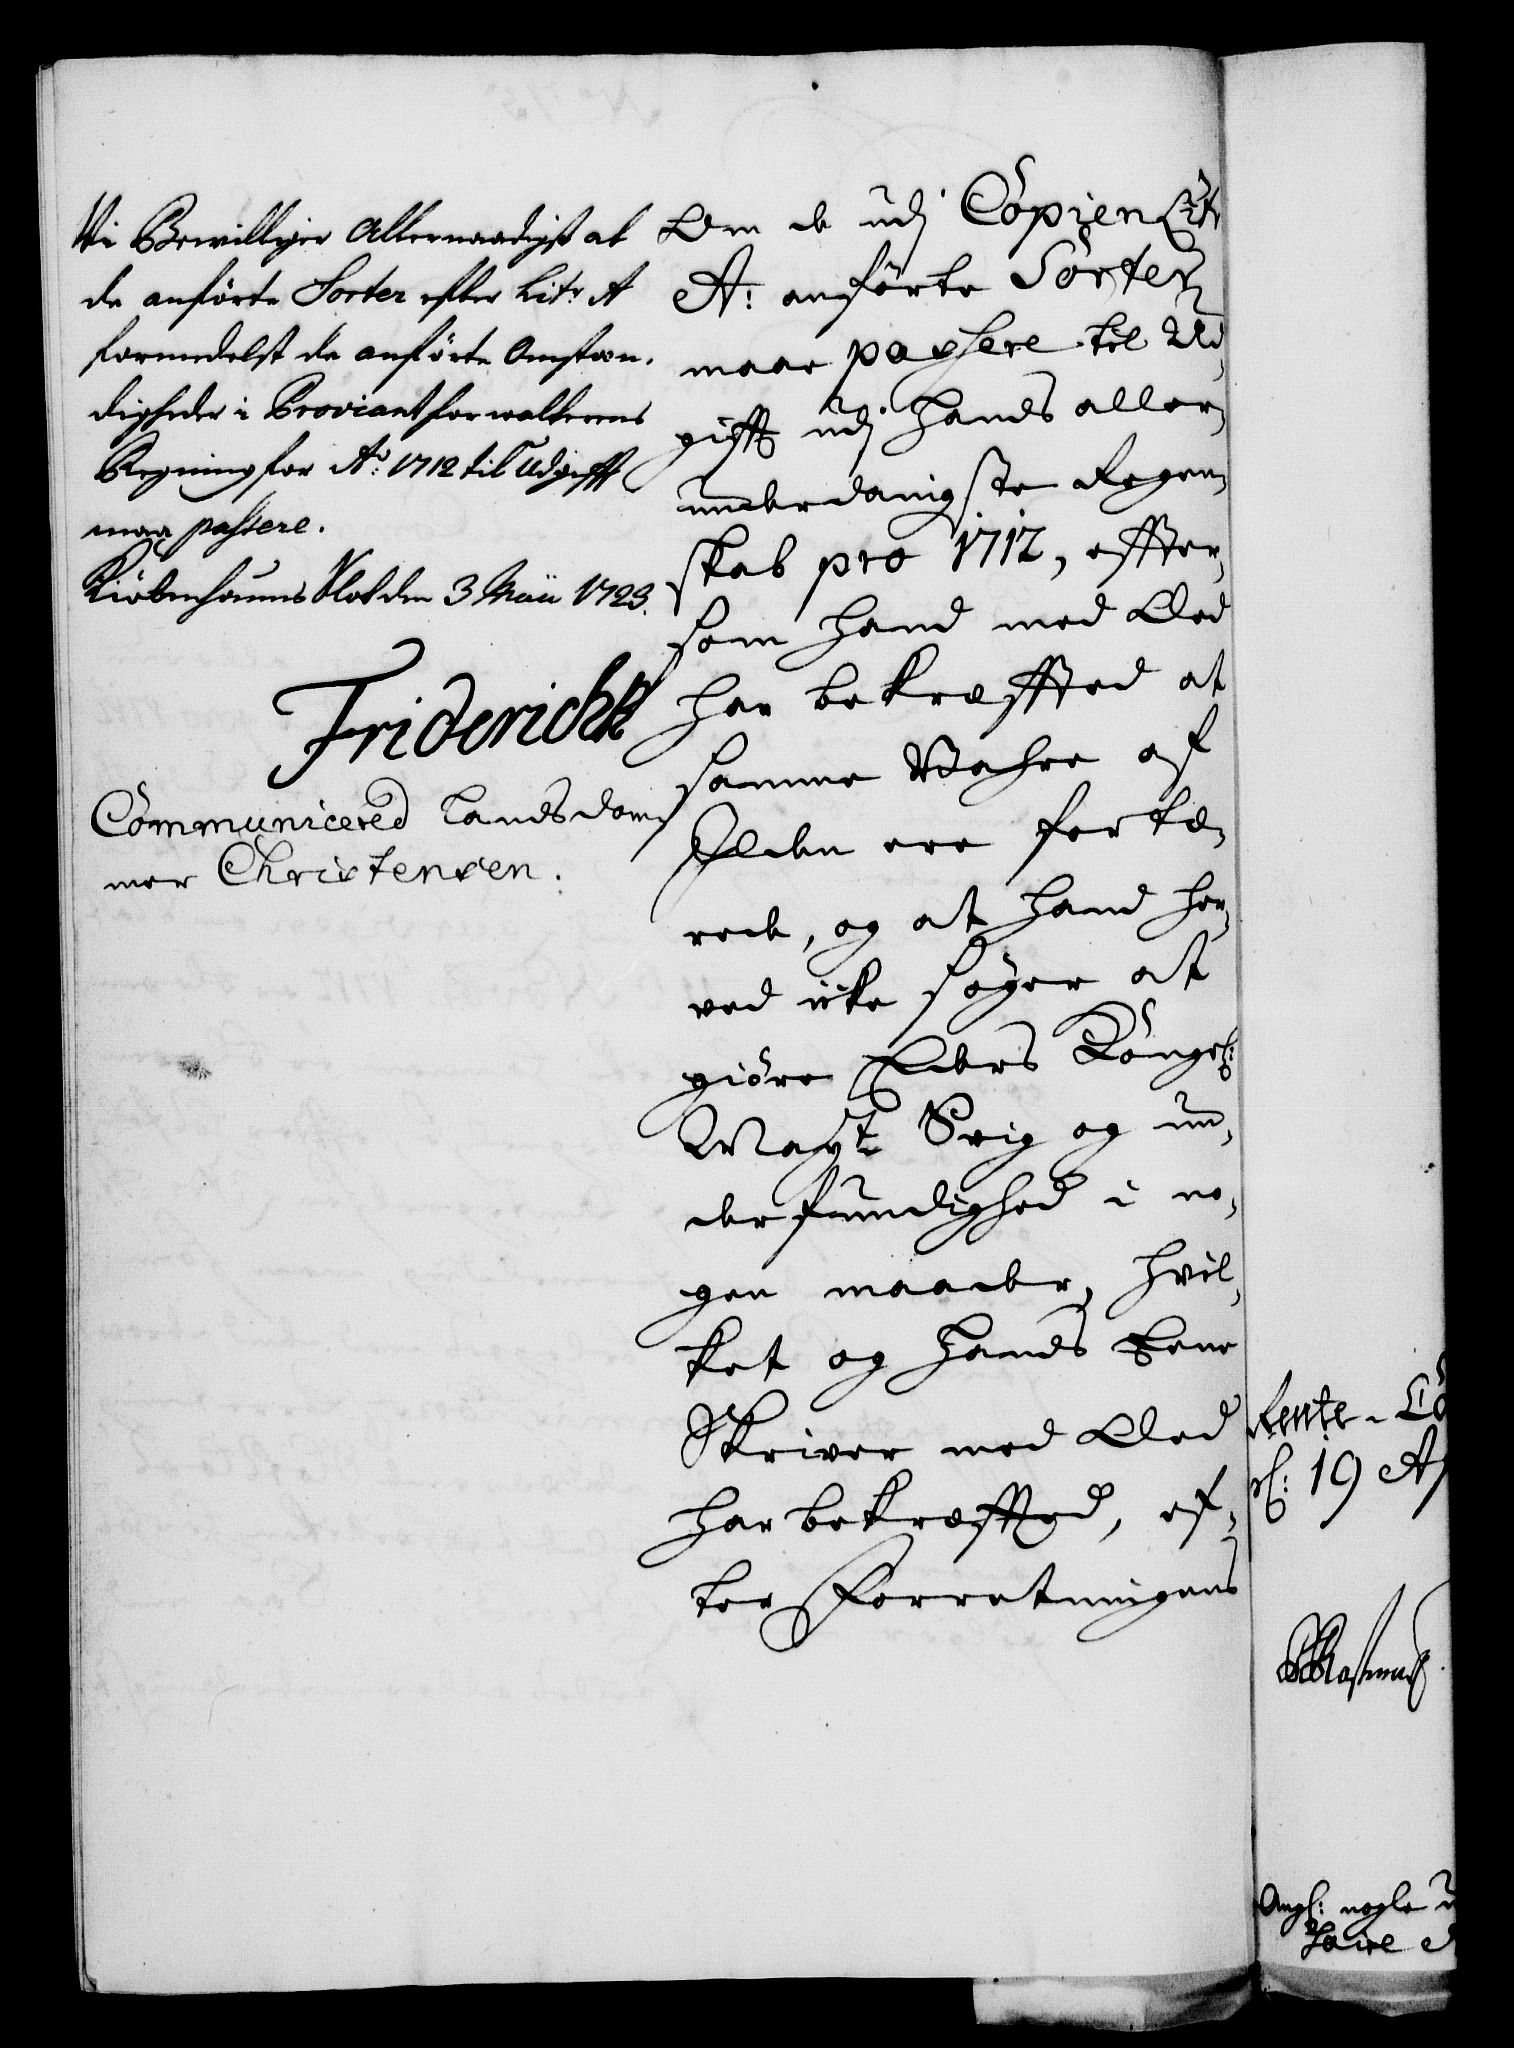 Vi Bewilliger Allernaadigst at
de anförte Sorter efter Litr A
formedelst de anförte Omstæn-
digheder i Proviantforwalterens
Regning for Ao: 1712 til Udgifft
maa passere.
Kiöbenhauns Slot den 3 Maii 1723.
Friderich R
Communicered Landsdom-
mer Christensen.
Om de udj Copien Litr
A: anförte Sorter
maae passere til Ud-
gifft udj hands aller-
underdanigste Regen-
skab pro 1712, effter-
som hand med Eed
har bekræffted at
samme Wahre af
Ilden ere fortæ-
rede, og at hand her-
ved icke söger at
giöre Eders Kongel:
Mayt Svig og un-
derfundighed i no-
gen maader, hvil-
ket og hands
Skriver med Eed
har bekræffted, ef-
ter Forretningens
Rente-Ca
d: 19 Ap
Angl: nogle u